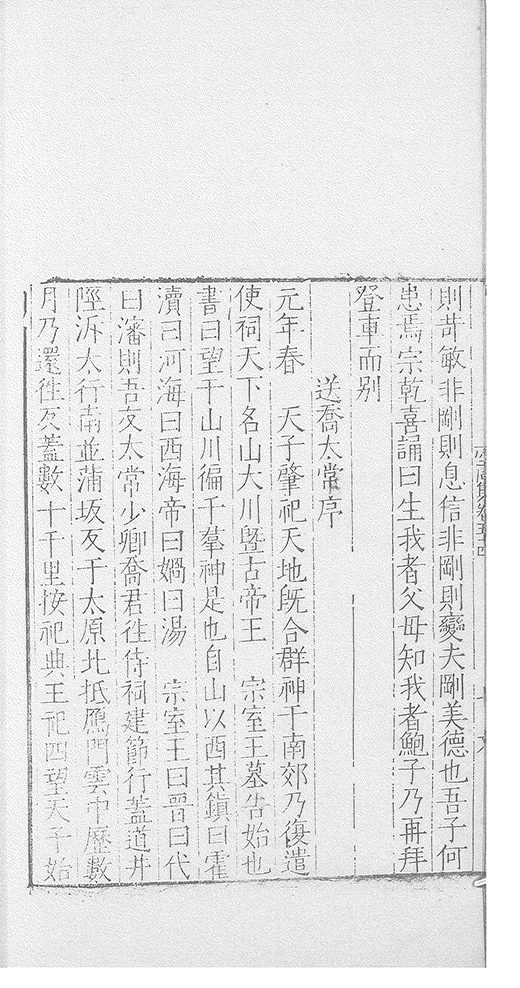 則苛敏非剛則息信非剛則變夫剛美德也吾子何
患焉宗乾喜誦曰生我者父母知我者鮑子乃再拜
登車而别
送喬太常序
元年春 天子肇祀天地既合群神于南郊乃復遣
使祠天下名山大川曁古帝王 宗室王墓告始也
書曰望于山川徧于羣神是也自山以西其鎮曰霍
瀆曰河海曰西海帝曰媧曰湯 宗室王曰晋曰代
曰瀋則吾友太常少卿喬君徃侍祠建節行蓋道井
陘泝太行南並蒲坂及于太原北抵鴈門雲中歷數
月乃還徃反蓋數十千里按祀典王祀四望天子始